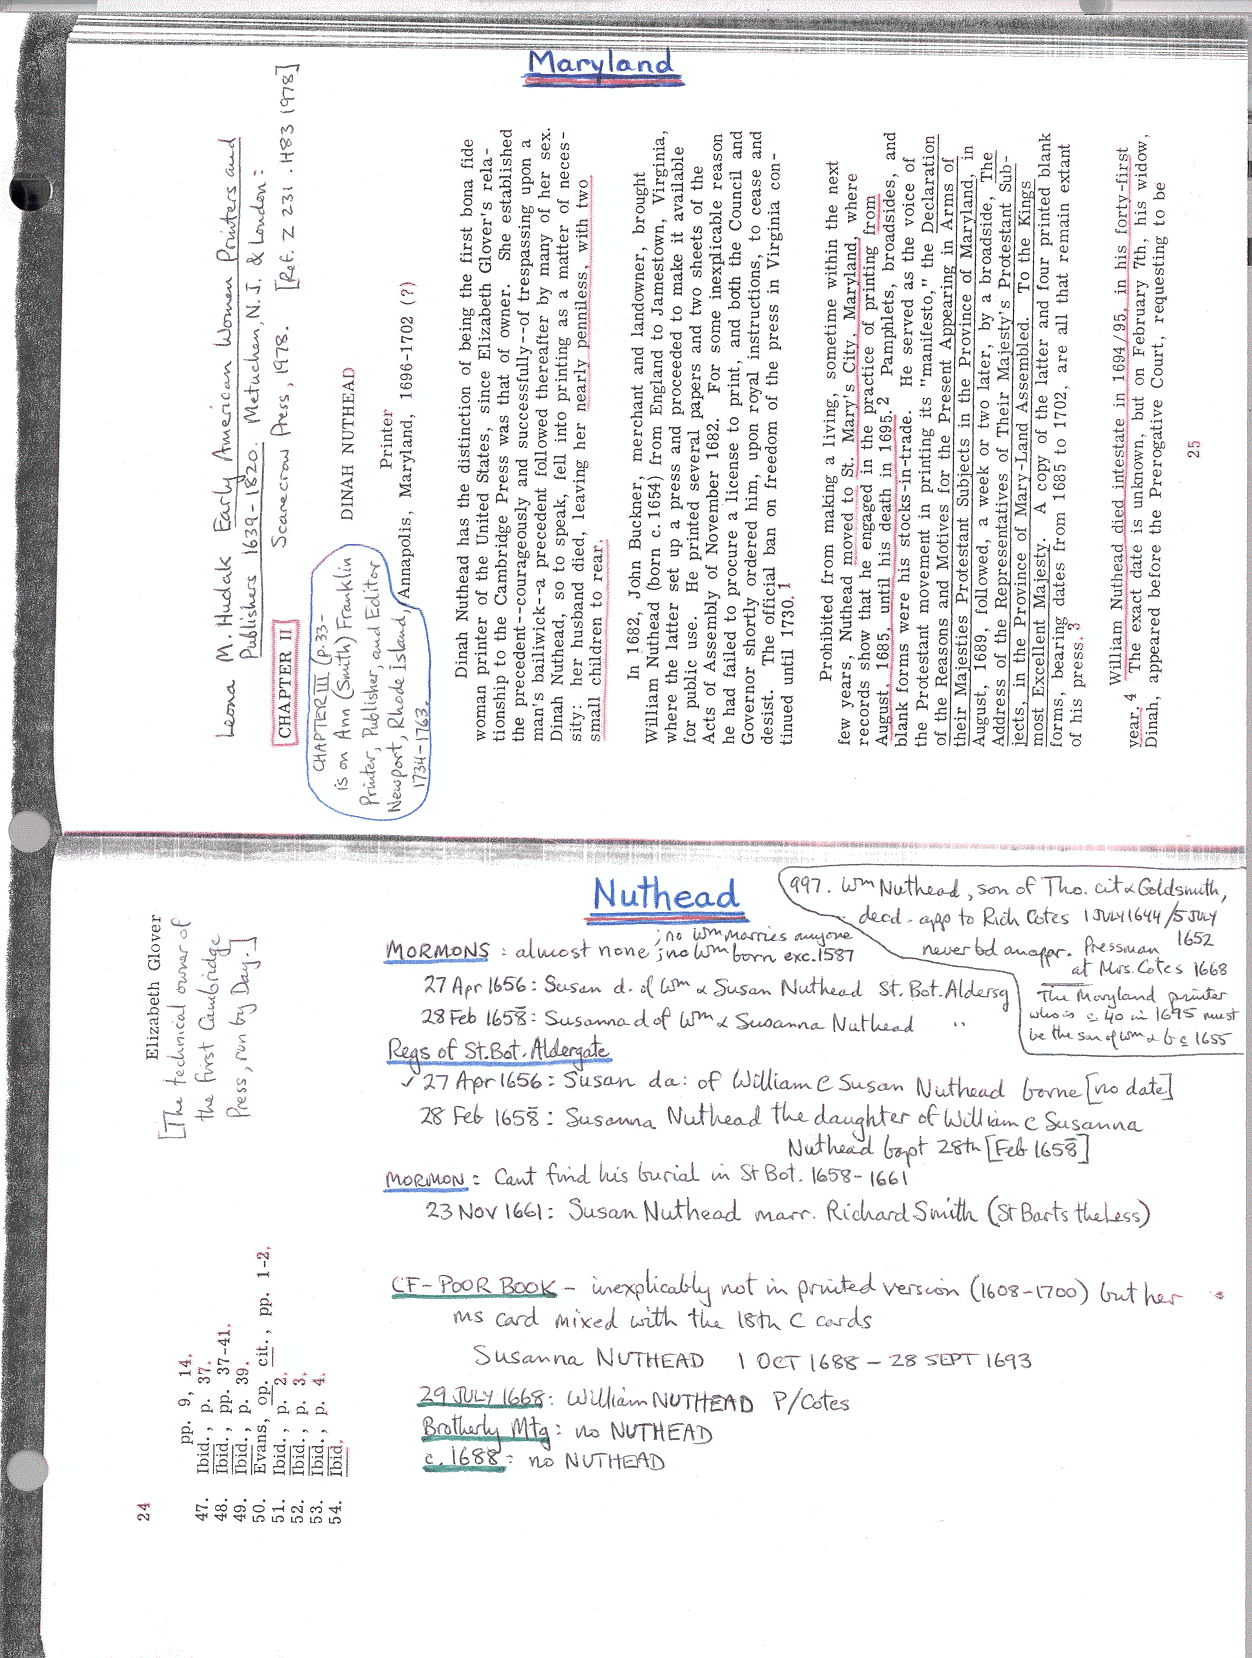 Maryland
Leona M. Hudak Early American Women Printers and
Publishers 1639-1820. Metuchen, N.J. & London:
Scarecrow Press, 1978. [Ref. Z 231 .H83 1978]
CHAPTER II
CHAPTER III (p.33-
is on Ann (Smith) Franklin
Printer, Publisher, and Editor
Newport, Rhode Island,
1734-1763.
DINAH NUTHEAD
Printer
Annapolis, Maryland, 1696-1702 (?)
Dinah Nuthead has the distinction of being the first bona fide
woman printer of the United States, since Elizabeth Glover's rela-
tionship to the Cambridge Press was that of owner. She established
the precedent--courageously and successfully--of trespassing upon a
man's bailiwick--a precedent followed thereafter by many of her sex.
Dinah Nuthead, so to speak, fell into printing as a matter of neces-
sity: her husband died, leaving her nearly penniless, with two
small children to rear.
In 1682, John Buckner, merchant and landowner, brought
William Nuthead (born c.1654) from England to Jamestown, Virginia,
where the latter set up a press and proceeded to make it available
for public use. He printed several papers and two sheets of the
Acts of Assembly of November 1682. For some inexplicable reason
he had failed to procure a license to print, and both the Council and
Governor shortly ordered him, upon royal instructions, to cease and
desist. The official ban on freedom of the press in Virginia con-
tinued until 1730.1
Prohibited from making a living, sometime within the next
few years, Nuthead moved to St. Mary's City, Maryland, where
records show that he engaged in the practice of printing from
August, 1685, until his death in 1695.2 Pamphlets, broadsides, and
blank forms were his stocks-in-trade. He served as the voice of
the Protestant movement in printing its "manifesto," the Declaration
of the Reasons and Motives for the Present Appearing in Arms of
their Majesties Protestant Subjects in the Province of Maryland, in
August, 1689, followed, a week or two later, by a broadside, The
Address of the Representatives of Their Majesty's Protestant Sub-
jects, in the Province of Mary-Land Assembled. To the Kings
most Excellent Majesty. A copy of the latter and four printed blank
forms, bearing dates from 1685 to 1702, are all that remain extant
of his press.3
William Nuthead died intestate in 1694/95, in his forty-first
year.4 The exact date is unknown, but on February 7th, his widow,
Dinah, appeared before the Prerogative Court, requesting to be
25
24
Elizabeth Glover
[The technical owner of
the first Cambridge
Press, run by Day.]
pp. 9, 14.
47. Ibid., p. 37.
48. Ibid., pp. 37-41.
49. Ibid., p. 39.
50. Evans, op. cit., pp. 1-2.
51. Ibid., p. 2.
52. Ibid., p. 3.
53. Ibid., p. 4.
54. Ibid.
Nuthead
997. Wm Nuthead, son of Tho. cit & Goldsmith,
decd. app to Rich Cotes 1 JULY 1644/5 JULY
1652
never bd an appr. Pressman
at Mrs. Cotes 1668
The Maryland printer
who is c 40 in 1695 must
be the son of Wm & b c 1655
MORMONS: almost none; no Wm born exc. 1587
; no Wm marries anyone
27 Apr 1656: Susan d. of Wm & Susan Nuthead St. Bot. Aldersg
28 Feb 1658: Susanna d of Wm & Susanna Nuthead "
Regs of St. Bot. Aldergate
✓ 27 Apr 1656: Susan da: of William & Susan Nuthead borne [no date]
28 Feb 1658: Susanna Nuthead the daughter of William & Susanna
Nuthead bapt 28th [Feb 1658]
MORMON: Cant find his burial in St Bot. 1658-1661
23 Nov 1661: Susan Nuthead marr. Richard Smith (St Barts the Less)
CF-POOR BOOK - inexplicably not in printed version (1608-1700) but her
ms card mixed with the 18th C cards
Susanna NUTHEAD 1 OCT 1688 - 28 SEPT 1693
29 JULY 1668: William NUTHEAD P/Cotes
Brotherly Mtg: no NUTHEAD
c. 1688: no NUTHEAD